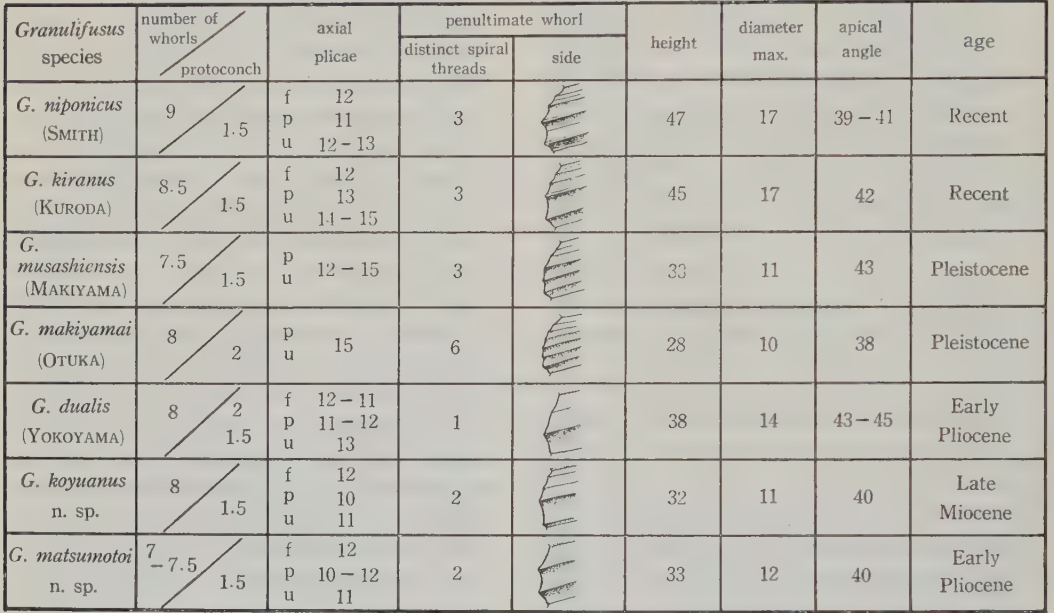 Granulifusus species
number of whorls / protoconch
axial plicae
penultimate whorl
distinct spiral threads
side
height
diameter max.
apical angle
age
G. niponicus
(SMITH)
9 / 1.5
f 12
p 11
u 12 – 13
3
47
17
39 – 41
Recent
G. kiranus
(KURODA)
8.5 / 1.5
f 12
p 13
u 14 – 15
3
45
17
42
Recent
G. musashiensis
(MAKIYAMA)
7.5 / 1.5
p
u 12 – 15
3
33
11
43
Pleistocene
G. makiyamai
(OTUKA)
8 / 2
p
u 15
6
28
10
38
Pleistocene
G. dualis
(YOKOYAMA)
8 / 2
1.5
f 12 – 11
p 11 – 12
u 13
1
38
14
43 – 45
Early
Pliocene
G. koyuanus
n. sp.
8 / 1.5
f 12
p 10
u 11
2
32
11
40
Late
Miocene
G. matsumotoi
n. sp.
7 – 7.5 / 1.5
f 12
p 10 – 12
u 11
2
33
12
40
Early
Pliocene